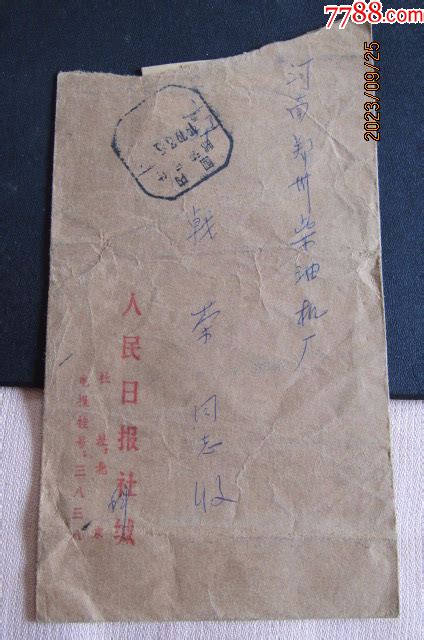 7788.com
2023/09/25
河南郑州柴油机厂
战荣同志收
人民日报社缄
社址：北京
电报挂号：三八三八